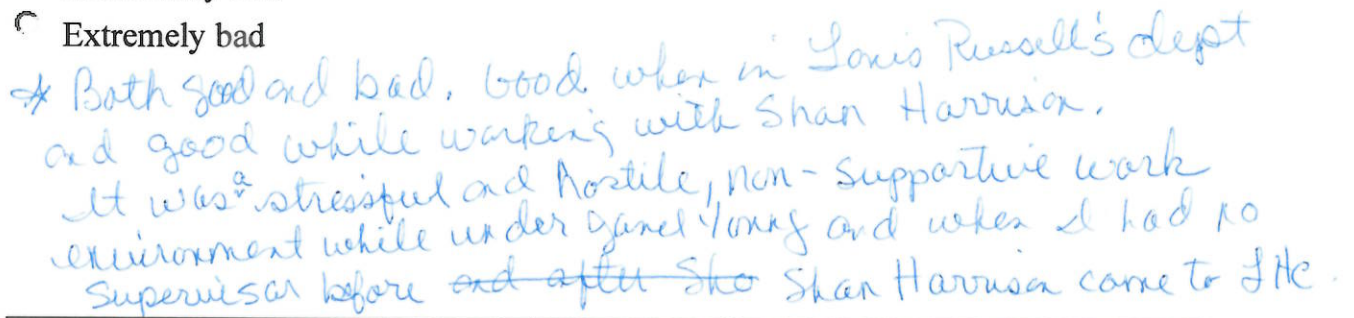 Extremely bad
* Both good and bad. Good when in Louis Russell's dept
and good while working with Shan Harrison.
It was a stressful and hostile, non-supportive work
environment while under Janel Young and when I had no
supervisor before and after Sha Shan Harrison came to LHC.